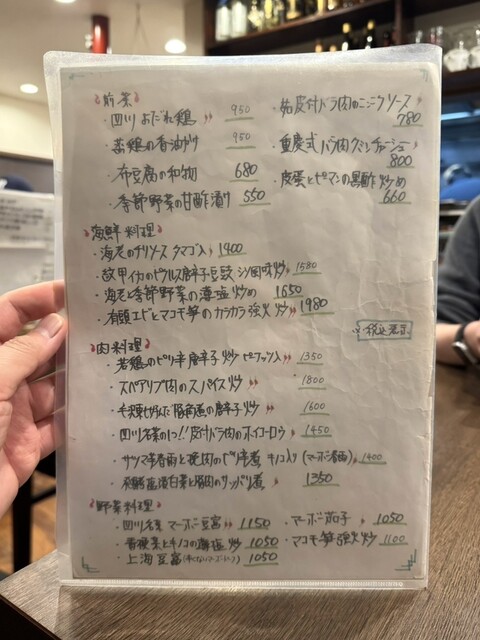 前菜
・四川 よだれ鶏 950
・蒸鶏の香油がけ 950
・布豆腐の和物 680
・季節野菜の甘酢漬け 550
・皮付バラ肉のニンニクソース 780
・重慶式バラ肉 800
・皮蛋とピーマンの黒酢炒め 660
海鮮料理
・海老のチリソース タマゴ入 1400
・紋甲イカのピクルス唐辛子豆豉 炒 1580
・海老と季節野菜の薄塩炒め 1650
・有頭エビとマコモ筍のカラカラ強火炒 1980
税込表示
肉料理
・若鶏のピリ辛唐辛子炒 ピーナッツ入 1350
・スペアリブ肉のスパイス炒 1800
・の唐辛子炒 1600
・四川名菜の1つ!! 皮付バラ肉のホイコーロウ 1450
・サツマ芋春雨と挽肉のピリ辛煮 キノコ入 (マーボー春雨) 1400
・発酵白菜と豚肉のサッパリ煮 1350
野菜料理
・四川名菜 マーボー豆腐 1150
・青梗菜とキノコの薄塩炒 1050
・上海豆腐 1050
・マーボー茄子 1050
・マコモ筍強火炒 1100